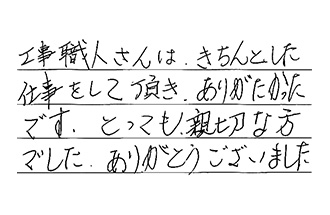 工事職人さんは、きちんとした
仕事をして頂き、ありがたかった
です、とっても、親切な方
でした、ありがとうございました